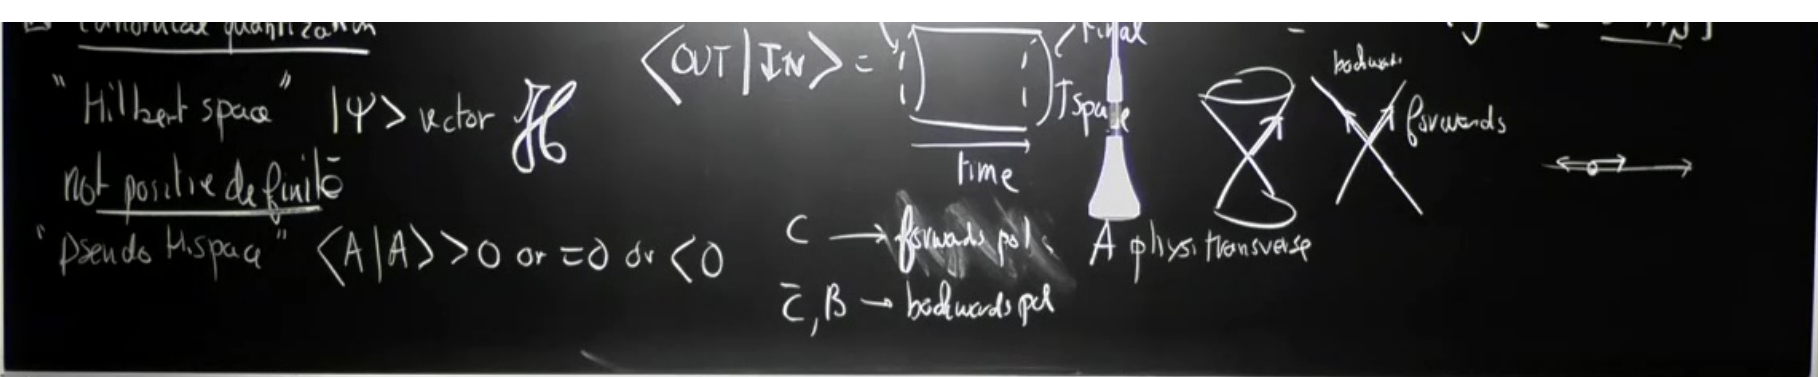 canonical quantization
"Hilbert space" |Ψ> vector ℋ
not positive definite
"Pseudo H. space" <A|A> > 0 or = 0 or < 0
<OUT|IN> =
Final
space
time
C → forwards pol.
C̄, B → backwards pol
A phys. transverse
forwards